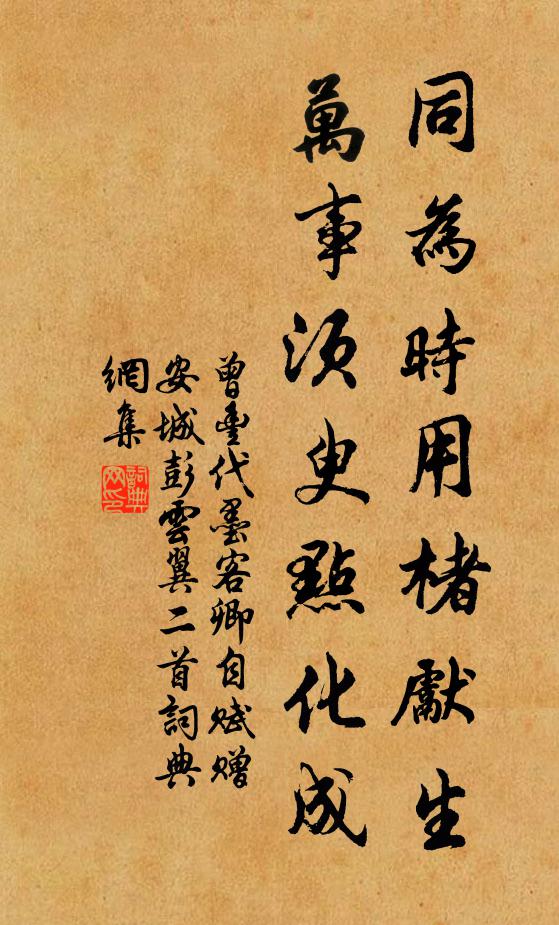 同為時用楮獻生
萬事須臾點化成
曾豐代墨客卿自賦贈
安城彭雲翼二首詞典
網集
詞典
网印